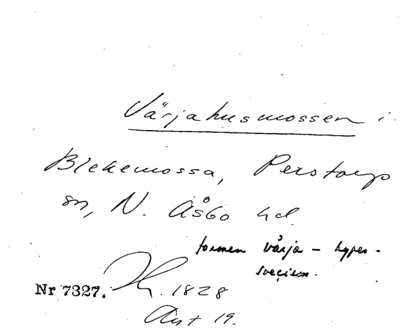 Värjahusmossen i
Blekemossa, Perstorps
sn, N. Åsbo hd.
formen värja – hyper-
svecism.
Nr 7327. 1828
Akt 19.